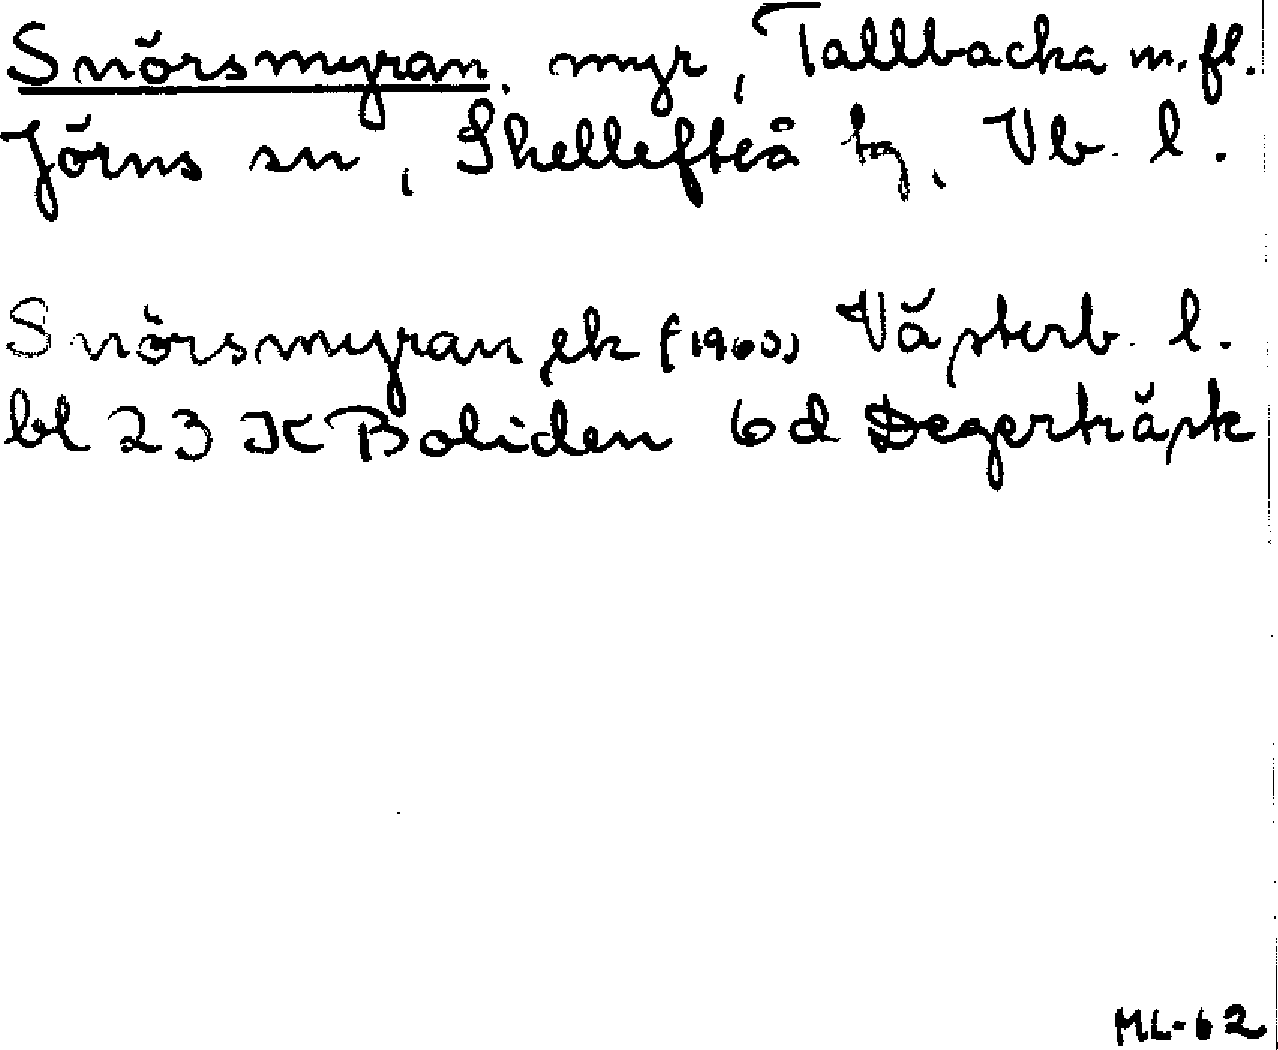 Snörsmyran, myr, Tallbacka m.fl.
Jörns sn, Skellefteå tg, Vb. l.
Snörsmyran ek (1960) Västerb. l.
bl 23 K Boliden 6 d Degerträsk
ML-62